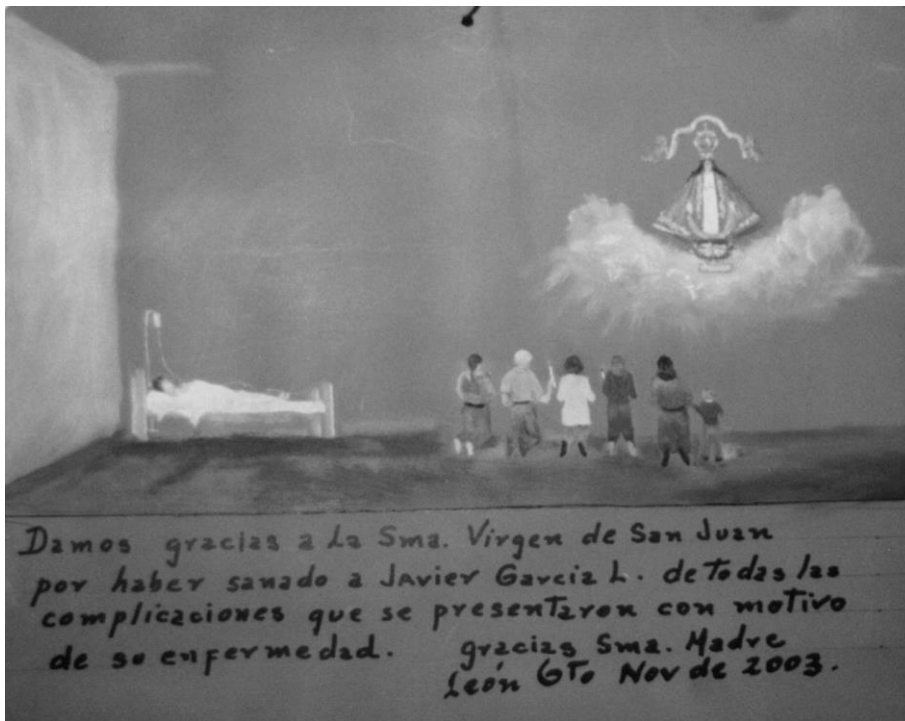 Damos gracias a la Sma. Virgen de San Juan
por haber sanado a Javier Garcia L. de todas las
complicaciones que se presentaron con motivo
de su enfermedad. gracias Sma. Madre
León GTo Nov de 2003.